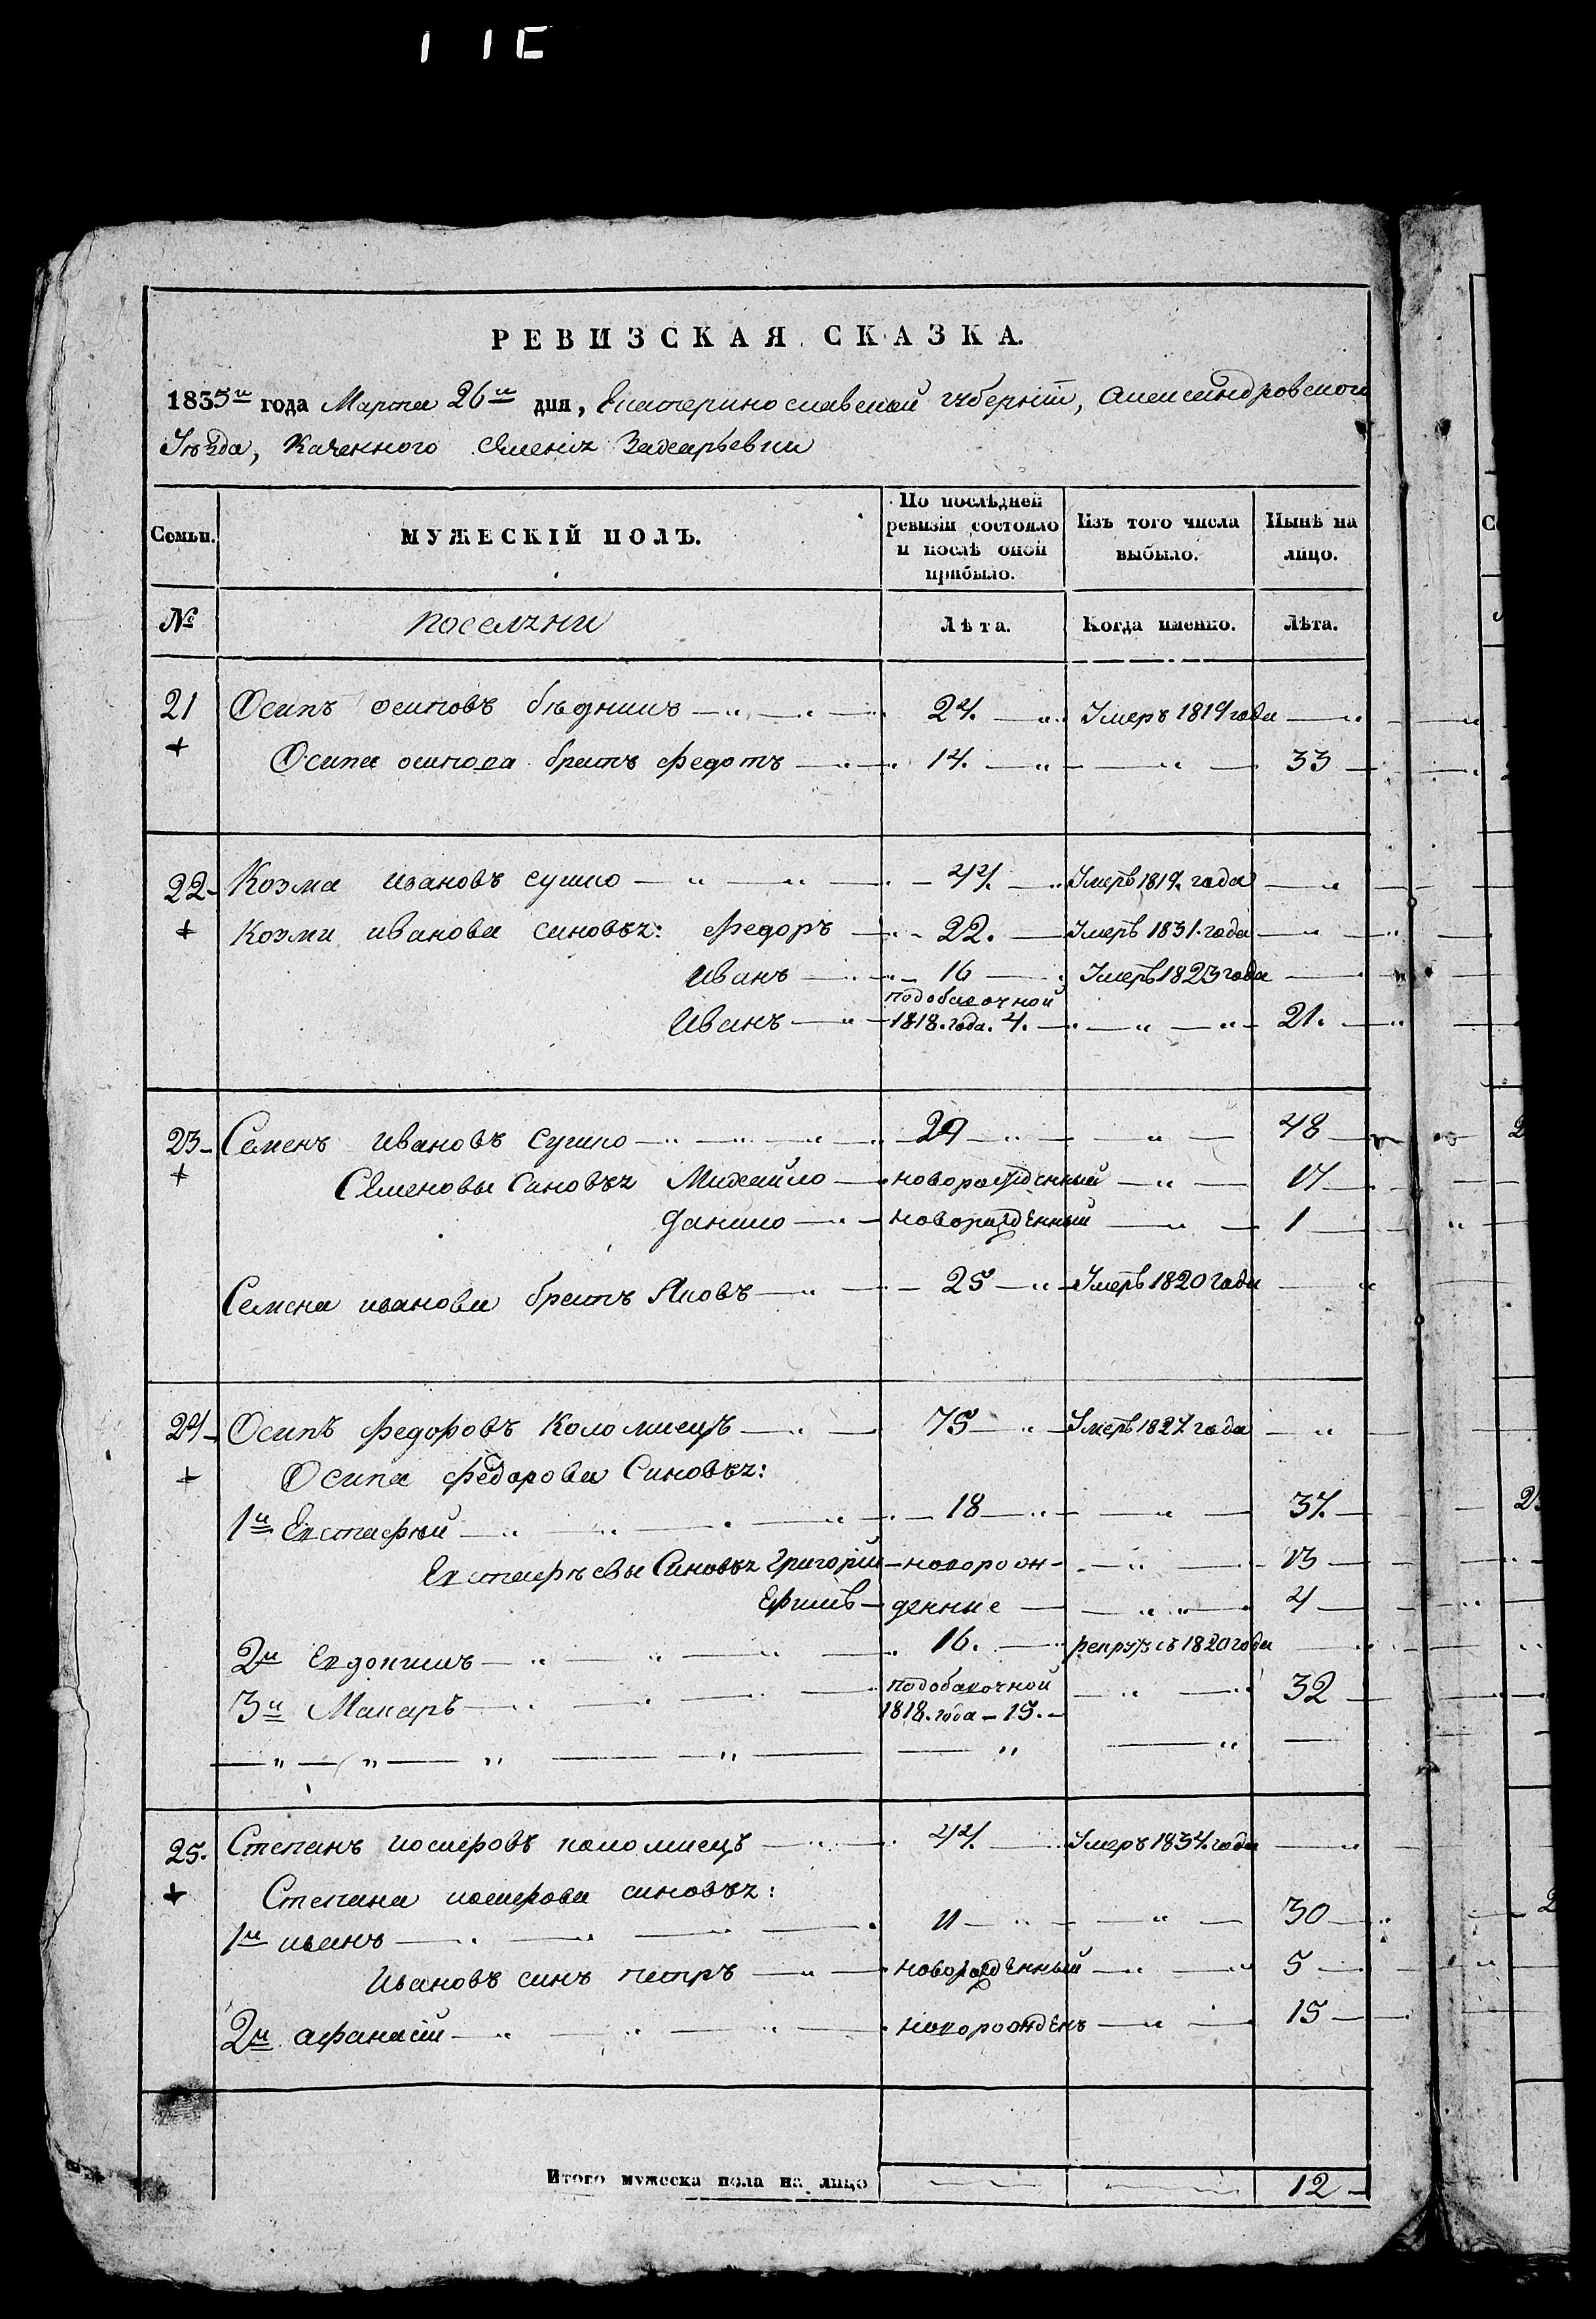 РЕВИЗСКАЯ СКАЗКА.
1835го года Марта 26го дня, Екатеринославской губернiи, Александровского
Уѣзда, Казенного Селенiя Захарьевки
Семьи.
МУЖЕСКIЙ ПОЛЪ.
По послѣдней ревизiи состояло и послѣ оной прибыло.
Изъ того числа выбыло.
Нынѣ на лицо.
№
поселяни
Лѣта.
Когда именно.
Лѣта.
21 Осипъ осиповъ 24. Умеръ 1819 года
Осипа осипова братъ федотъ 14. 33
22 Козма ивановъ сушко 44. Умеръ 1819. года
Козми иванова синовья: федоръ 22. Умеръ 1831. года
иванъ 16 Умеръ 1823 года
Иванъ подобавочной 1818. года. 4. 21.
23 Семенъ ивановъ сушко 29 48
Семеновы Синовья Михайло новорожденный 17
данило новорожденный 1
Семена иванова братъ Яковъ 25 Умеръ 1820 года
24 Осипъ федоровъ коломиецъ 75 Умеръ 1827. года
Осипа федорова Синовья:
1й Евстафiй 18 37.
Евстафьевы Синовья Григорiй новорож 13
Ефимъ денние 4
2й Евдокимъ 16. рекрутъ съ 1820 года
3й Макаръ подобавочной 1818. года 15. 32
25. Степанъ иосифовъ коломиецъ 44. Умеръ 1834. года
Степана иосифова синовья:
1й иванъ 11 30
Ивановъ синъ петръ новорожденный 5
2й афанасiй новорожденъ 15
Итого мужеска пола на лицо 12